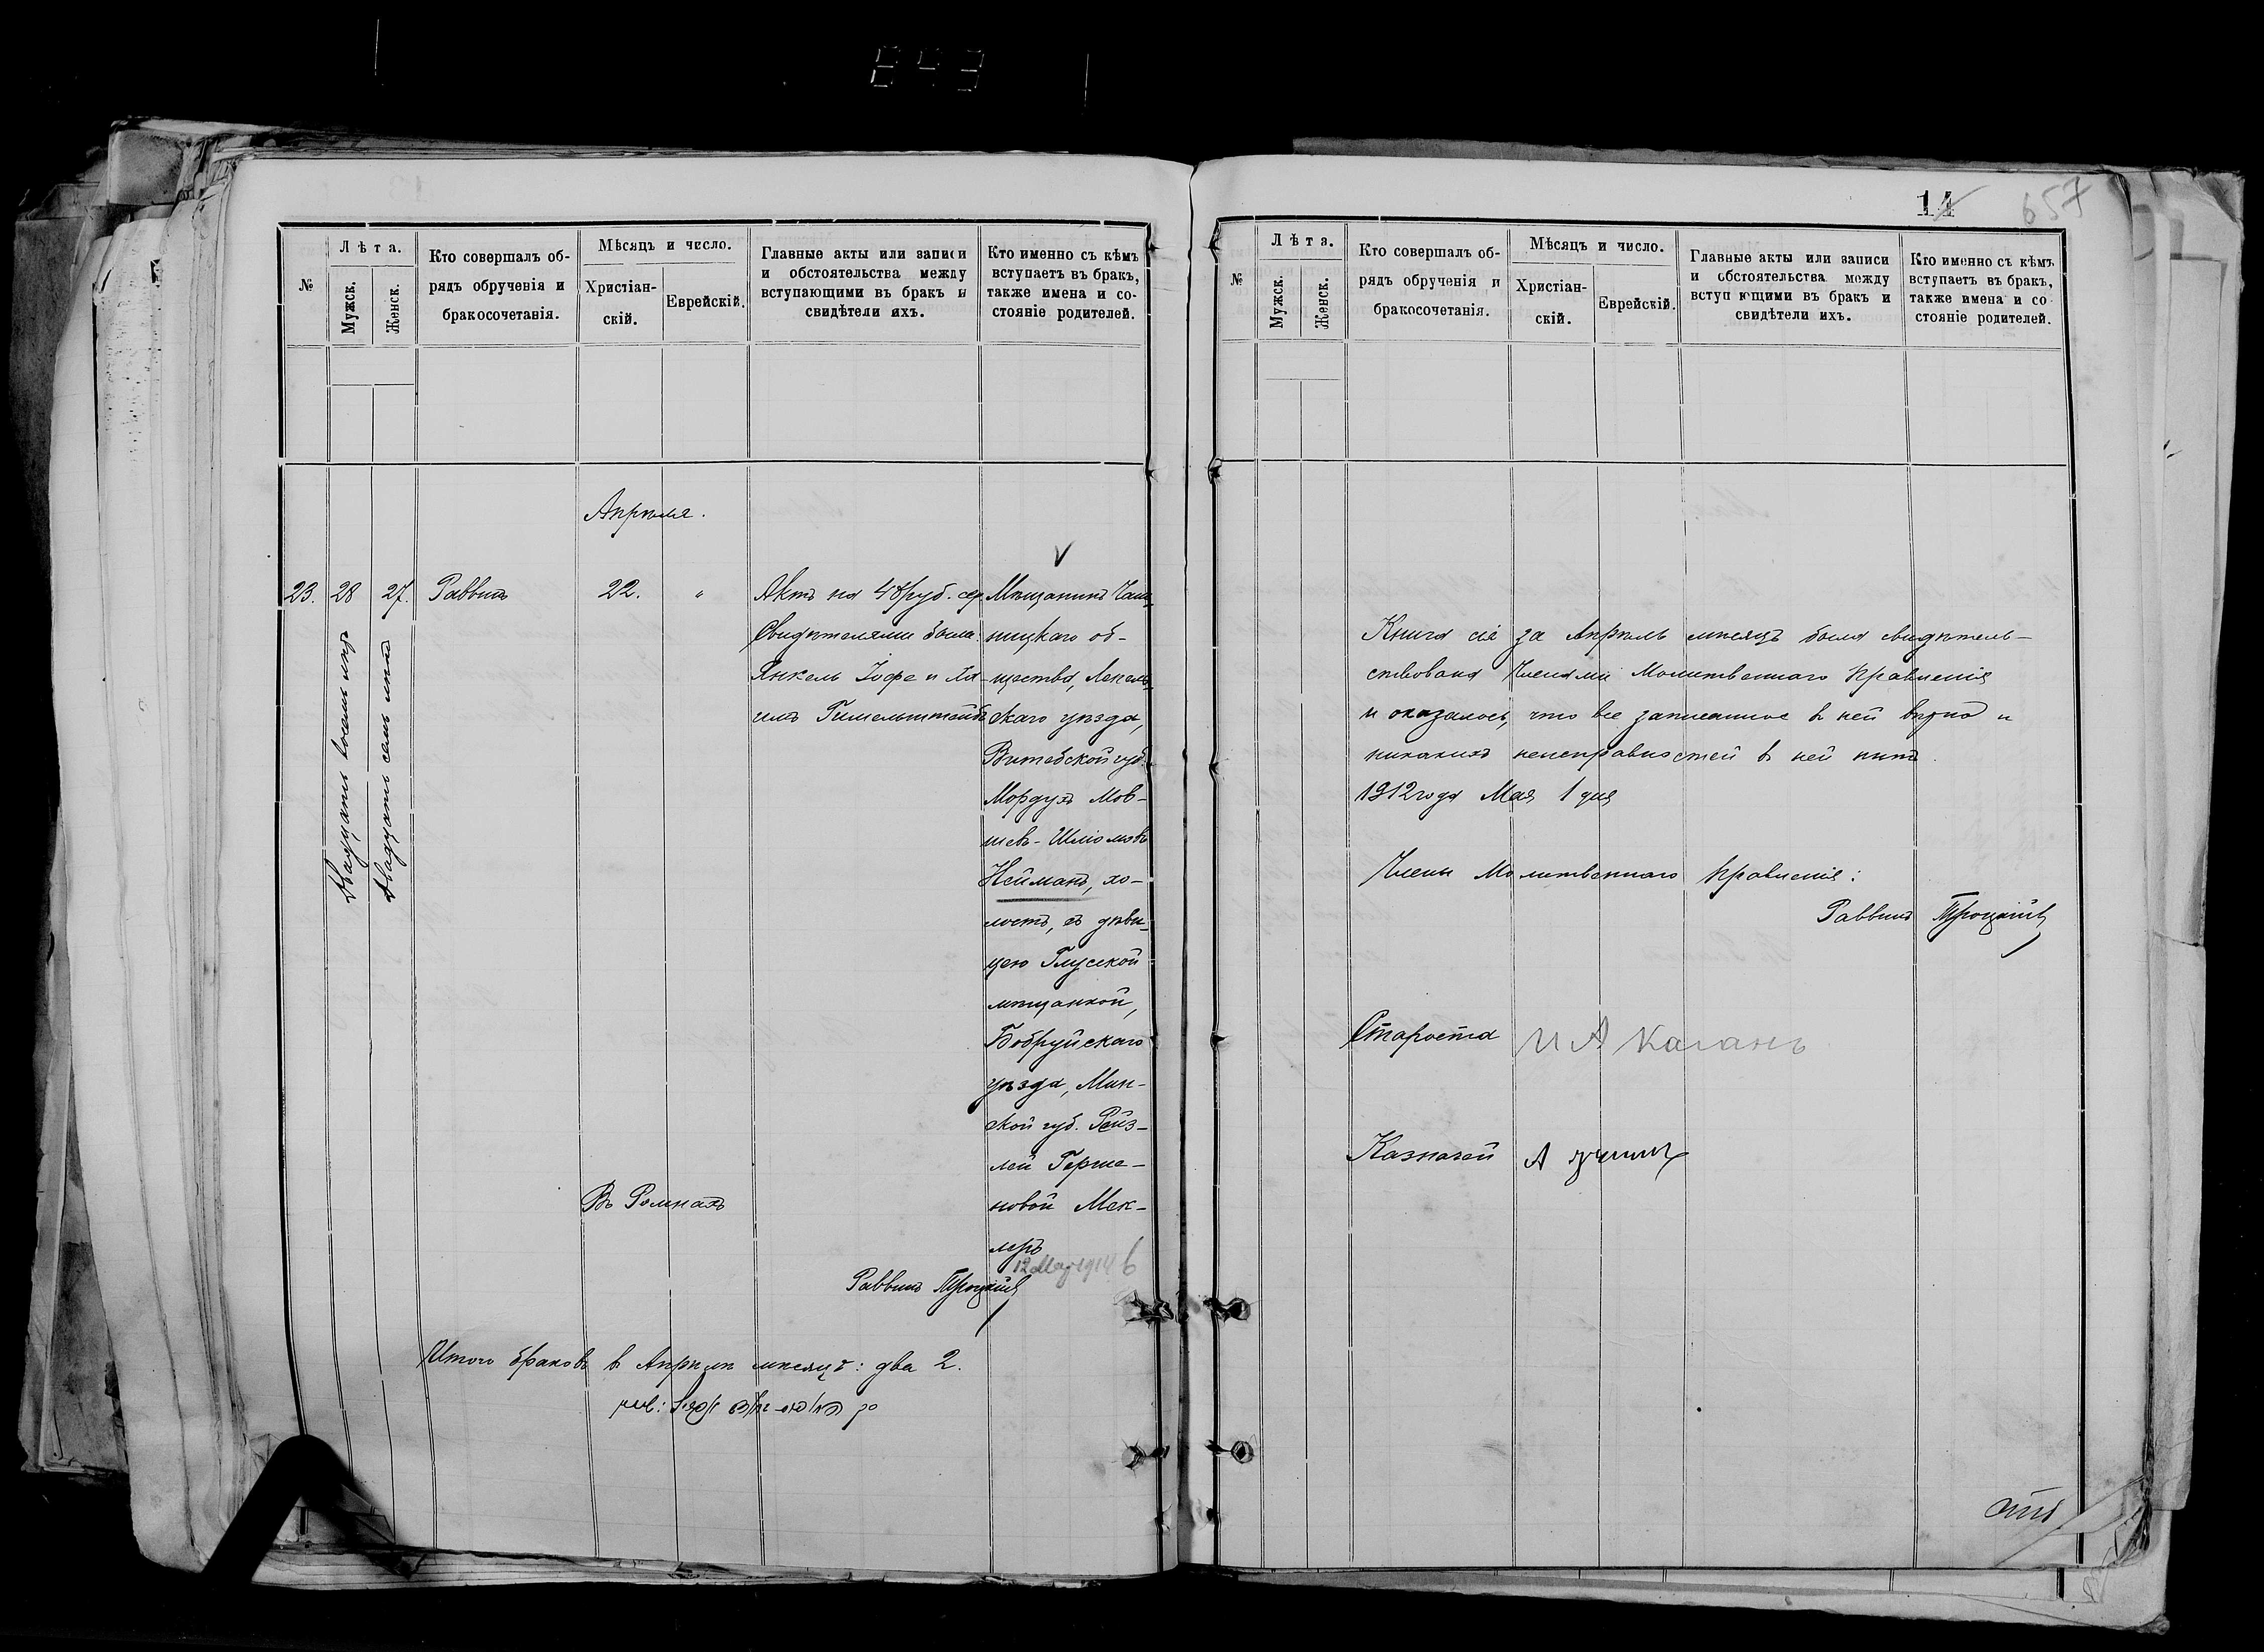 893
№
Лѣта.
Мужск.
Женск.
Кто совершалъ об-
рядъ обрученія и
бракосочетанія.
Мѣсяцъ и число.
Христіан-
скій.
Еврейскій.
Главные акты или записи
и обстоятельства между
вступающими въ бракъ и
свидѣтели ихъ.
Кто именно съ кѣмъ
вступаетъ въ бракъ,
также имена и со-
стояніе родителей.
Апрѣля.
23.
28
Двадцать восемь лѣтъ
27.
Двадцать семь лѣтъ
Раввинъ
22.
"
Въ Ромнахъ
Актъ на 48 руб. сер.
Свидѣтелями были:
Янкель Іофе и Ха-
имъ Гимельштейнъ
Мѣщанинъ Чаш-
ницкаго об-
щества, Лепель-
скаго уѣзда,
Витебской губ.
Мордухъ Мов-
шев-Шліомовъ
Нейманъ, хо-
лостъ, съ дѣви-
цею Глусской
мѣщанкой,
Бобруйскаго
уѣзда, Мин-
ской губ. Рейз-
лей Герше-
новой Мек-
леръ
Раввинъ Троцкій
Итого браковъ в Апрѣлѣ мѣсяцѣ: два 2.
14
657
№
Лѣта.
Мужск.
Женск.
Кто совершалъ об-
рядъ обрученія и
бракосочетанія.
Мѣсяцъ и число.
Христіан-
скій.
Еврейскій.
Главные акты или записи
и обстоятельства между
вступ ющими въ бракъ и
свидѣтели ихъ.
Кто именно съ кѣмъ
вступаетъ въ бракъ,
также имена и со
стояніе родителей.
Книга сія за Апрѣль мѣсяцъ была свидѣтель-
ствована Членами Молитвеннаго Правленія
и оказалось, что все записанное в ней вѣрно и
никакихъ неисправностей в ней нѣтъ.
1912 года Мая 1 дня
Члены Молитвеннаго Правленія:
Раввинъ Троцкій
Староста И А Каганъ
Казначей А